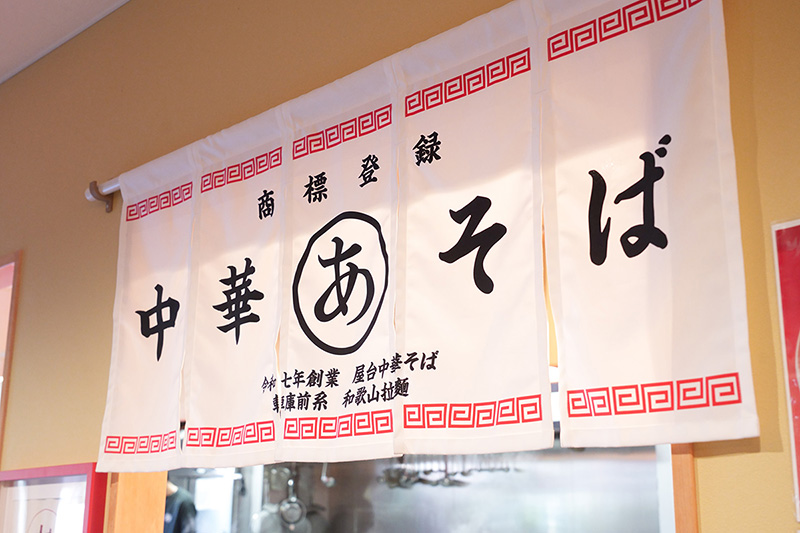 商標登録
中華 あ そば
令和七年創業 屋台中華そば
車庫前系 和歌山拉麺